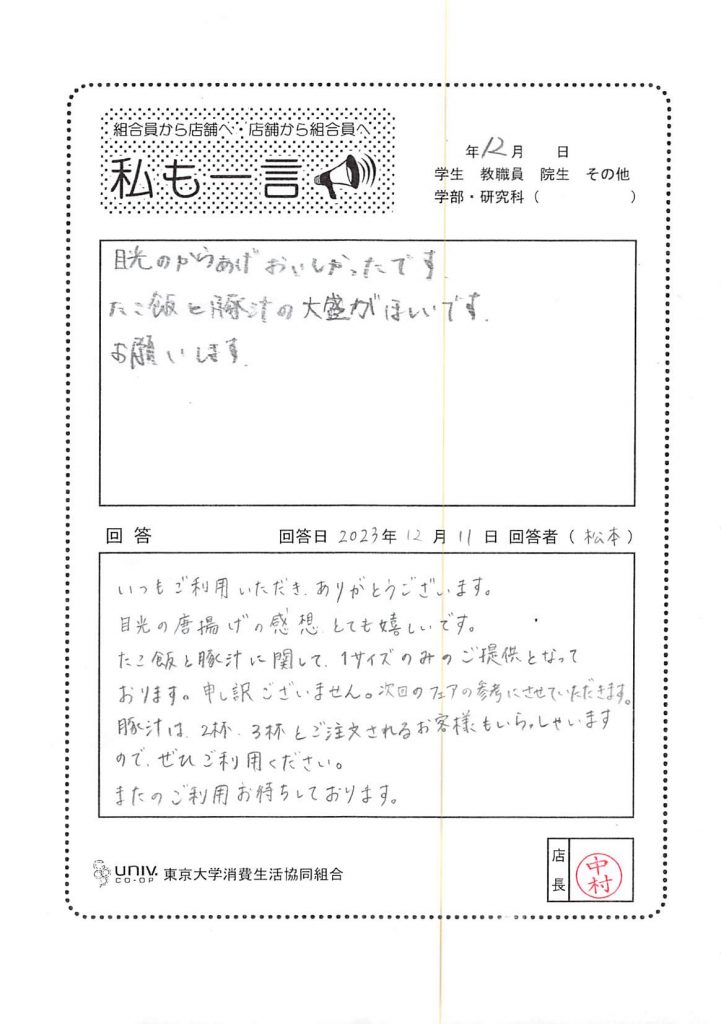 組合員から店舗へ・店舗から組合員へ
私も一言
年12月 日
学生 教職員 院生 その他
学部・研究科( )
目光のからあげおいしかったです.
たこ飯と豚汁の大盛がほしいです.
お願いします.
回答 回答日 2023年 12月 11日 回答者(松本)
いつもご利用いただき、ありがとうございます。
目光の唐揚げの感想、とても嬉しいです。
たこ飯と豚汁に関して、1サイズのみのご提供となって
おります。申し訳ございません。次回のフェアの参考にさせていただきます。
豚汁は、2杯、3杯とご注文されるお客様もいらっしゃいます
ので、ぜひご利用ください。
またのご利用お待ちしております。
UNIV. CO-OP 東京大学消費生活協同組合
店長 中村